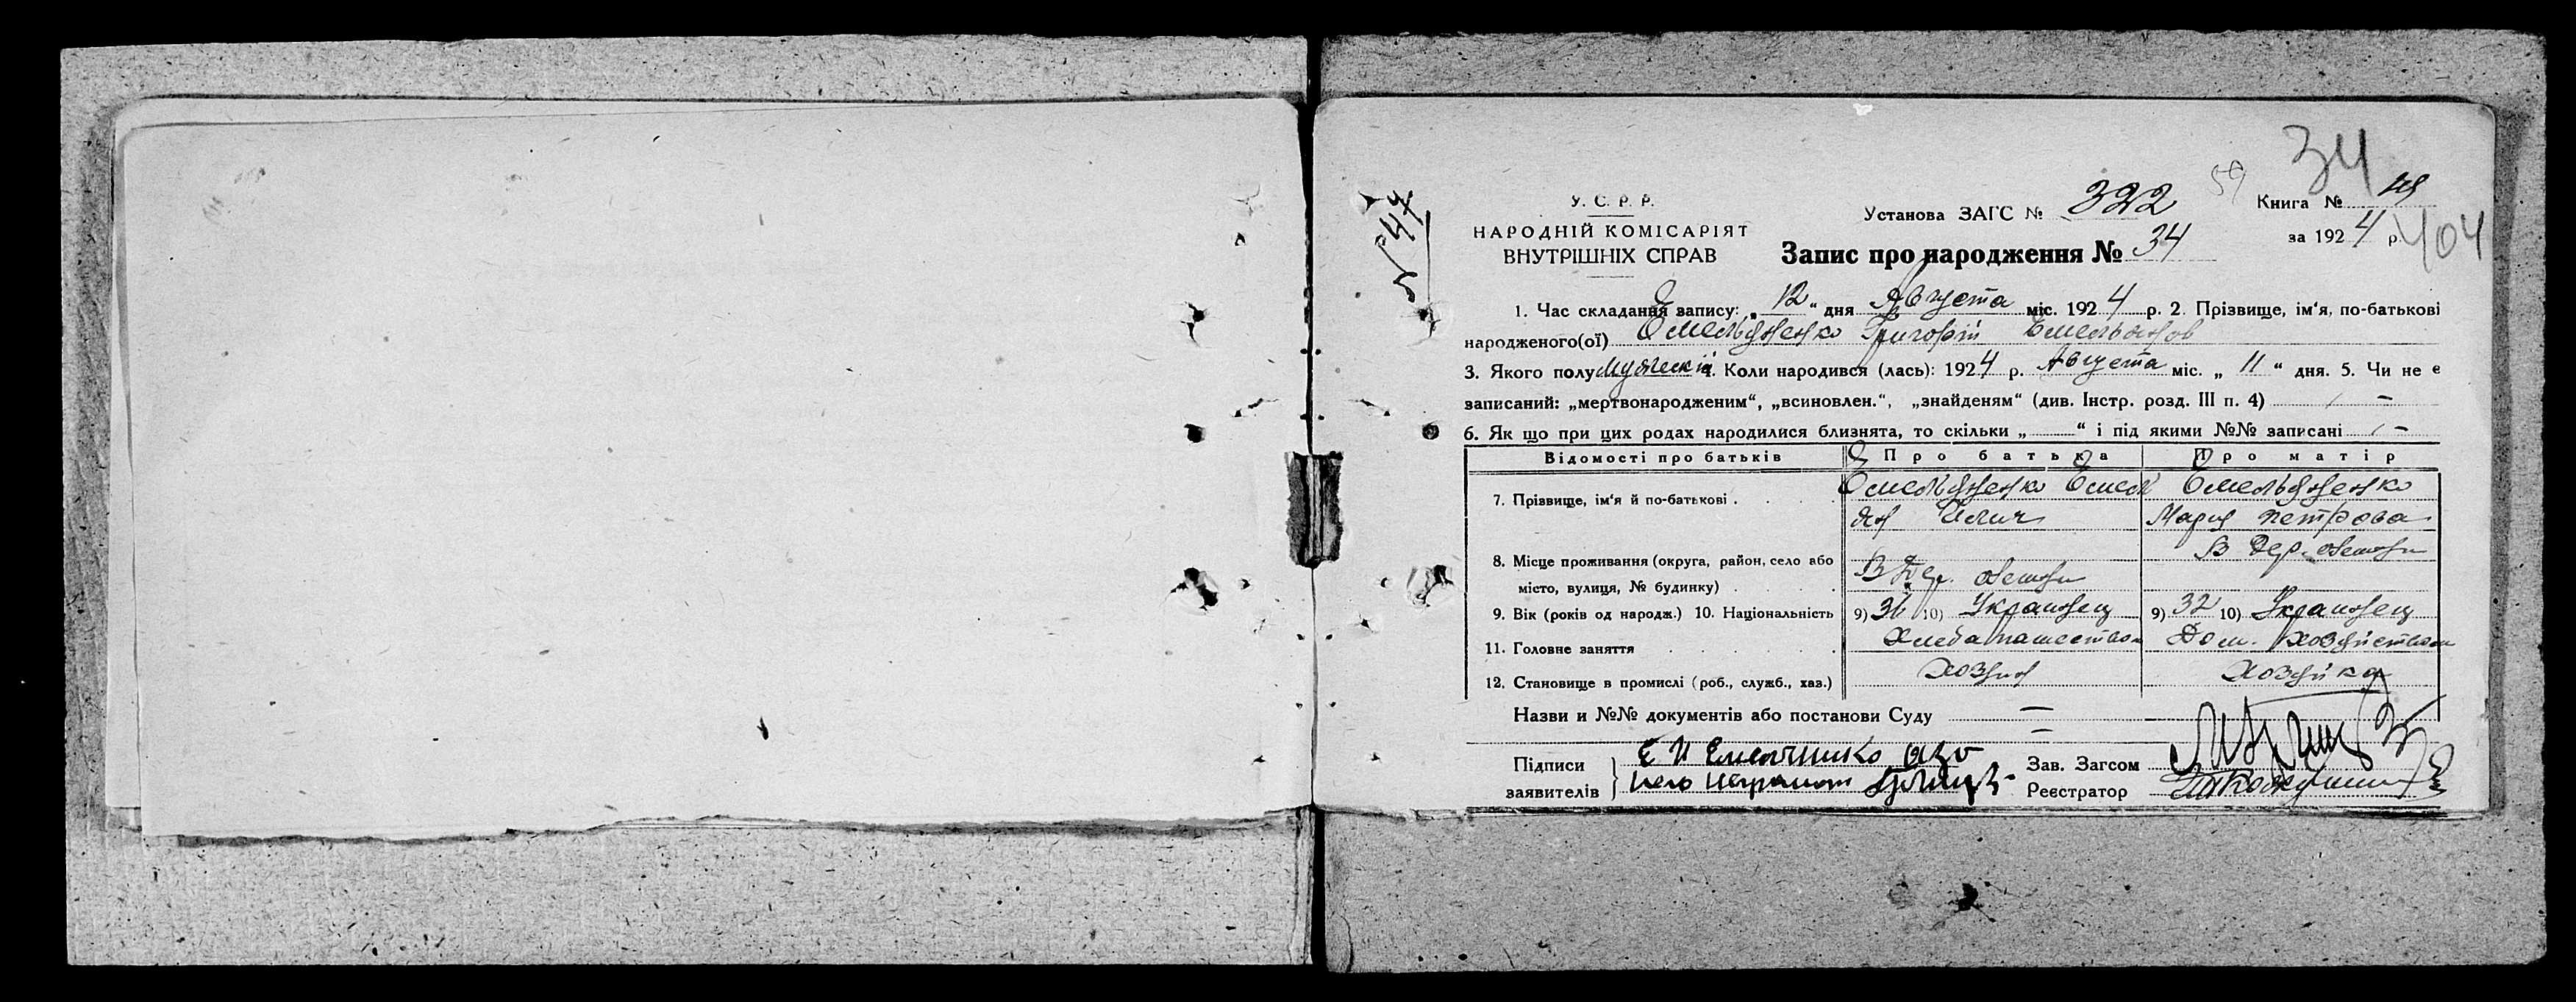 34
59
У. С. Р. Р.
НАРОДНІЙ КОМІСАРІЯТ
ВНУТРІШНІХ СПРАВ
Установа ЗАГС № 322
Книга №
за 1924 р.
404
Запис про народження № 34
1. Час складання запису: „ 12 “ дня Августа міс. 1924 р. 2. Прізвище, ім‘я, по-батькові
народженого(ої) Омельяненко Григорій Емельянов
3. Якого полу Мужескій 4. Коли народився (лась): 1924 р. Августа міс. „ 11 “ дня. 5. Чи не е
записаний: „мертвонародженим“, „всиновлен.“, „знайденям“ (див. Інстр. розд. III п. 4) —
6. Як що при цих родах народилися близнята, то скільки „ “ і під якими №№ записані —
Відомості про батьків Про батька Про матір
7. Прізвище, ім‘я й по-батькові . Омельяненко Емель Омельяненко
ян Илич Мария Петрова
8. Місце проживання (округа, район, село або
місто, вулиця, № будинку) В Дер. В Дер.
9. Вік (років од народж.) 10. Національність 9) 36 10) Украинец 9) 32 10) Украинец
11. Головне заняття Хлебопашеством Дом. хозяйством
12. Становище в промислі (роб., служб., хаз.) хозяин хозяйка
Назви и №№ документів або постанови Суду —
Підписи
заявителів
Зав. Загсом
Реєстратор